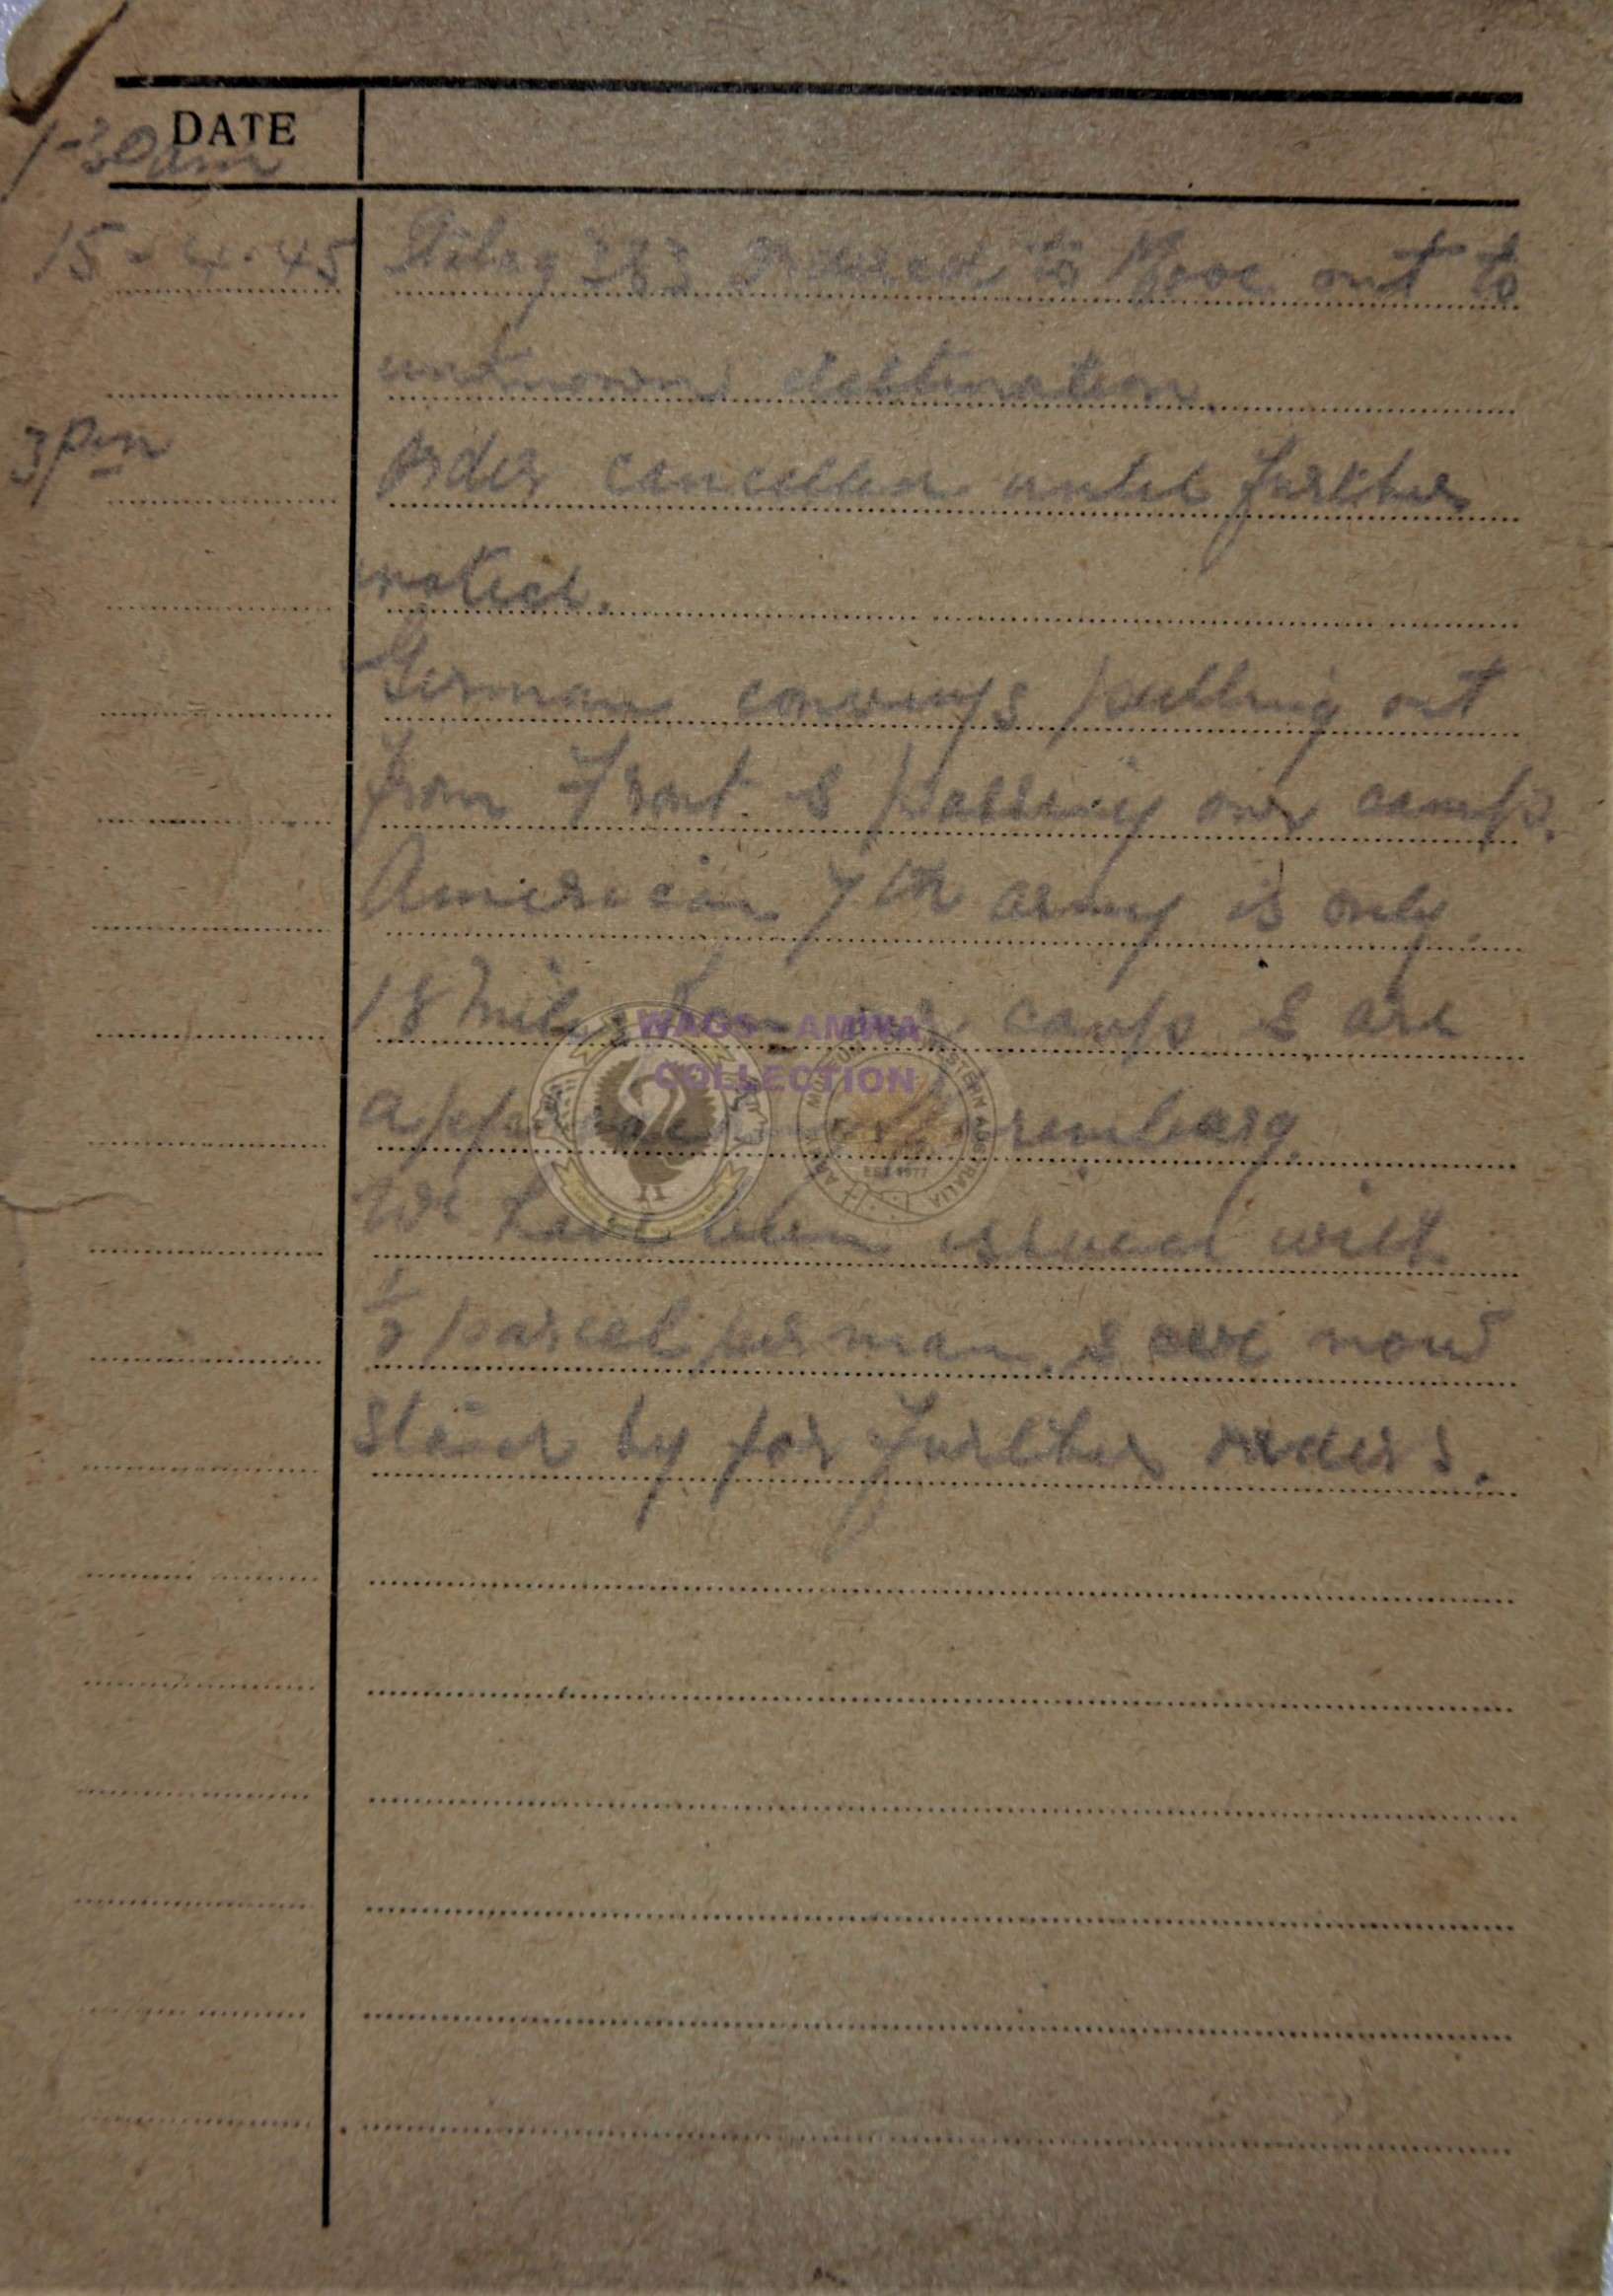 DATE
1-30am
15-4-45 Stalag 383 ordered to Move out to
unknown destination
3pm order cancelled until further
notice.
German convoys pulling out
from Front & passing our camp.
American 7th army is only
18 Miles from our camp & are
approaching Nuremburg.
We have been issued with
1/2 parcel per man & are now
stand by for further orders.
WAGS - AMWA
COLLECTION
ARMY MUSEUM OF WESTERN AUSTRALIA
EST 1977